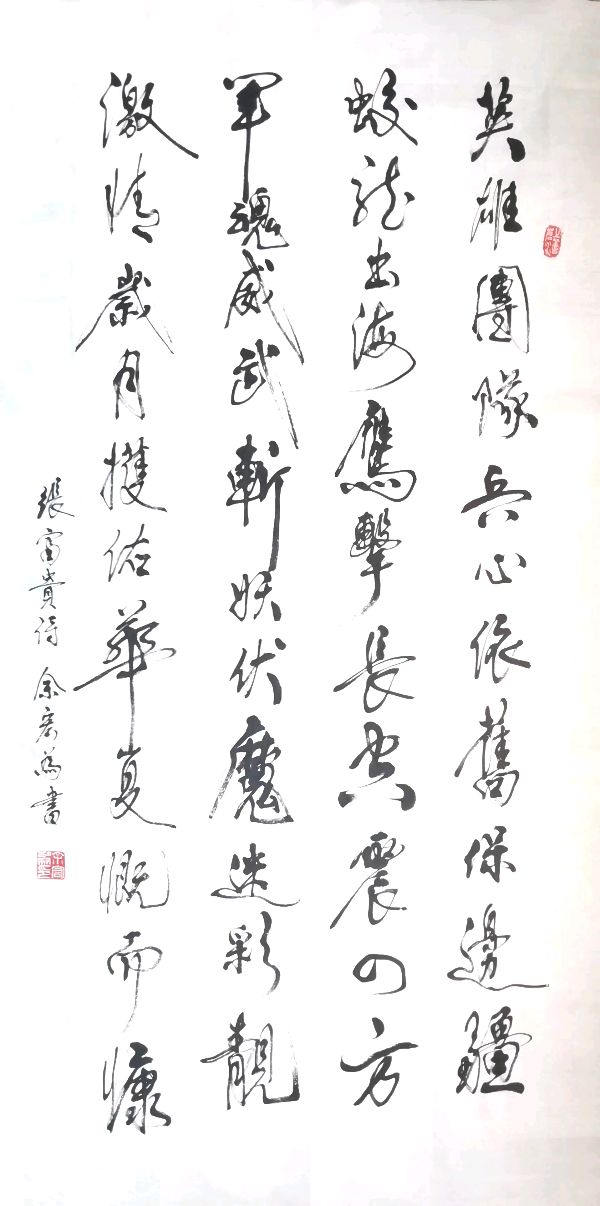 英雄團隊兵心依舊保邊疆
蛟龍出海鷹擊長空震四方
軍魂威武斬妖伏魔迷彩靓
激情歲月擭佑華夏慨而慷
張富貴詩 余宏為書